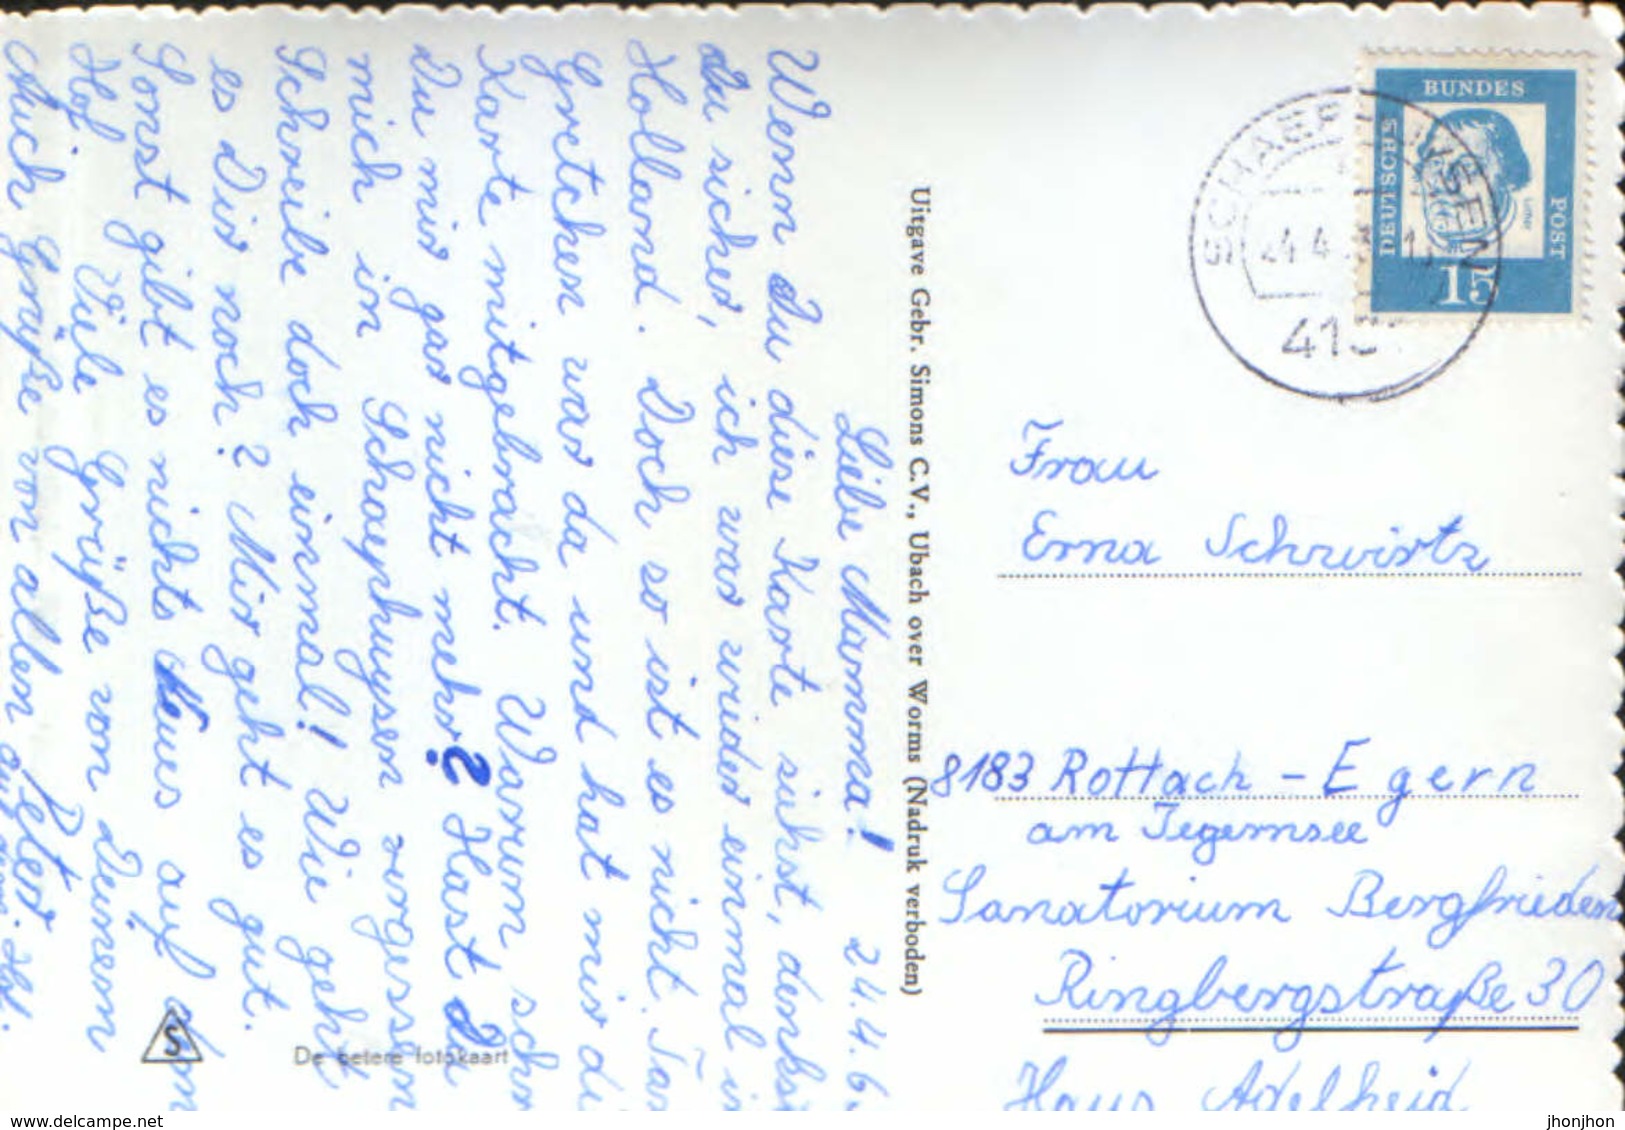 Liebe Mamma! 24.4.6
Wenn Du diese Karte siehst, denkst
du sicher, ich war wieder einmal in
Holland. Doch so ist es nicht. Tan
Gretchen war da und hat mir di
Karte mitgebracht. Warum schr
Du mir gar nicht mehr? Hast Du
mich in Schaephuysen vergessen
Schreibe doch einmal! Wie geht
es Dir noch? Mir geht es gut.
Sonst gibt es nichts Neues auf dem
Hof. Viele Grüße von Deinem
Peter
Auch Grüße von allen auf dem Hof.
Uitgave Gebr. Simons C.V., Ubach over Worms (Nadruk verboden)
S
De betere fotokaart
DEUTSCHE
BUNDES
POST
Luther
15
SCHAEPHUYSEN
24.4
Frau
Erna Schwirtz
8183 Rottach - Egern
am Tegernsee
Sanatorium Bergfrieden
Ringbergstraße 30
Haus Adelheid
www.delcampe.net
jhonjhon